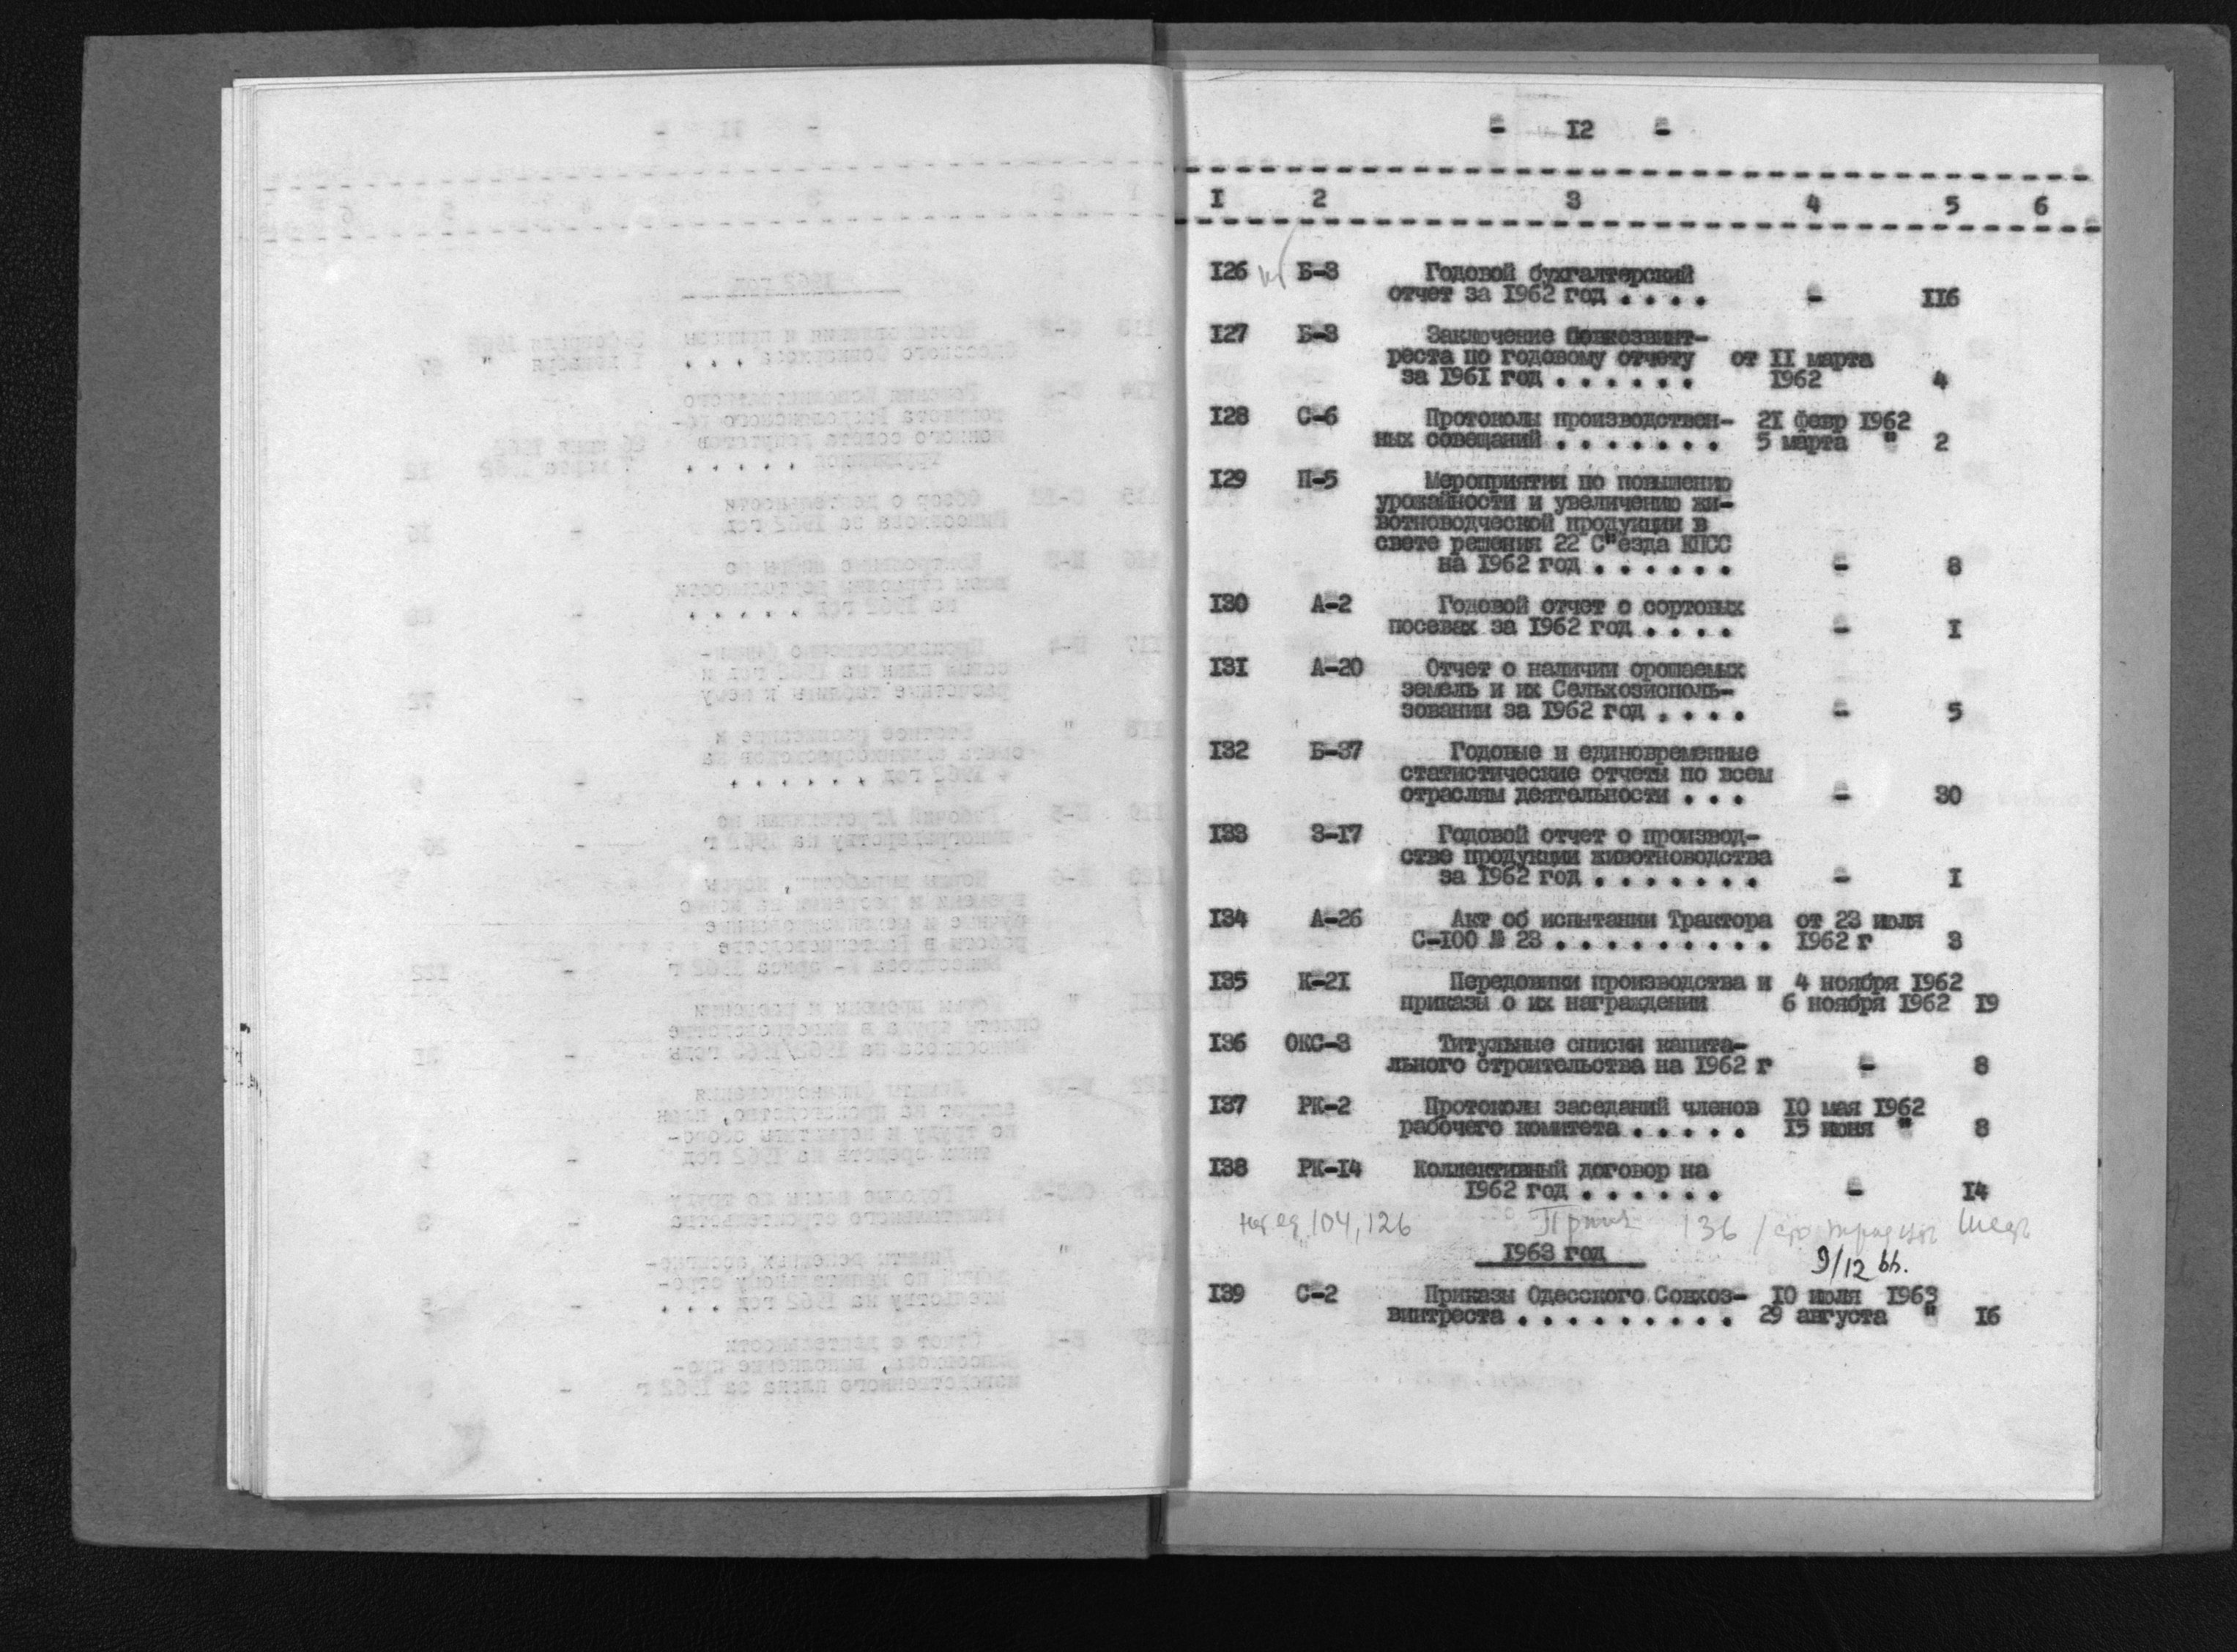 - I2 -
I 2 3 4 5 6
I26 Б-3 Годовой бухгалтерский
отчет за I962 год . . . . - II6
I27 Б-3 Заключение Совхозвинт-
реста по годовому отчету от II марта
за I96I год . . . . . . I962 4
I28 С-6 Протоколы производствен- 2I февр I962
ных совещаний . . . . . . . 5 марта " 2
I29 П-5 Мероприятия по повышению
урожайности и увеличению жи-
вотноводческой продукции в
свете решения 22 С"езда КПСС
на I962 год . . . . . . - 8
I30 А-2 Годовой отчет о сортовых
посевах за I962 год . . . . - I
I3I А-20 Отчет о наличии орошаемых
земель и их Сельхозисполь-
зовании за I962 год . . . . - 5
I32 Б-37 Годовые и единовременные
статистические отчеты по всем
отраслям деятельности . . . - 30
I33 З-I7 Годовой отчет о производ-
стве продукции животноводства
за I962 год . . . . . . . - I
I34 А-26 Акт об испытании Трактора от 23 июля
С-I00 № 23 . . . . . . . . . I962 г 3
I35 К-2I Передовики производства и 4 ноября I962
приказы о их награждении 6 ноября I962 I9
I36 ОКС-3 Титульные списки капита-
льного строительства на I962 г - 8
I37 РК-2 Протоколы заседаний членов I0 мая I962
рабочего комитета . . . . . I5 июня " 8
I38 РК-I4 Коллективный договор на
I962 год . . . . . . - I4
104, 126 136
I963 год
9/12
I39 С-2 Приказы Одесского Совхоз- I0 июля I963
винтреста . . . . . . . . . 29 августа " I6